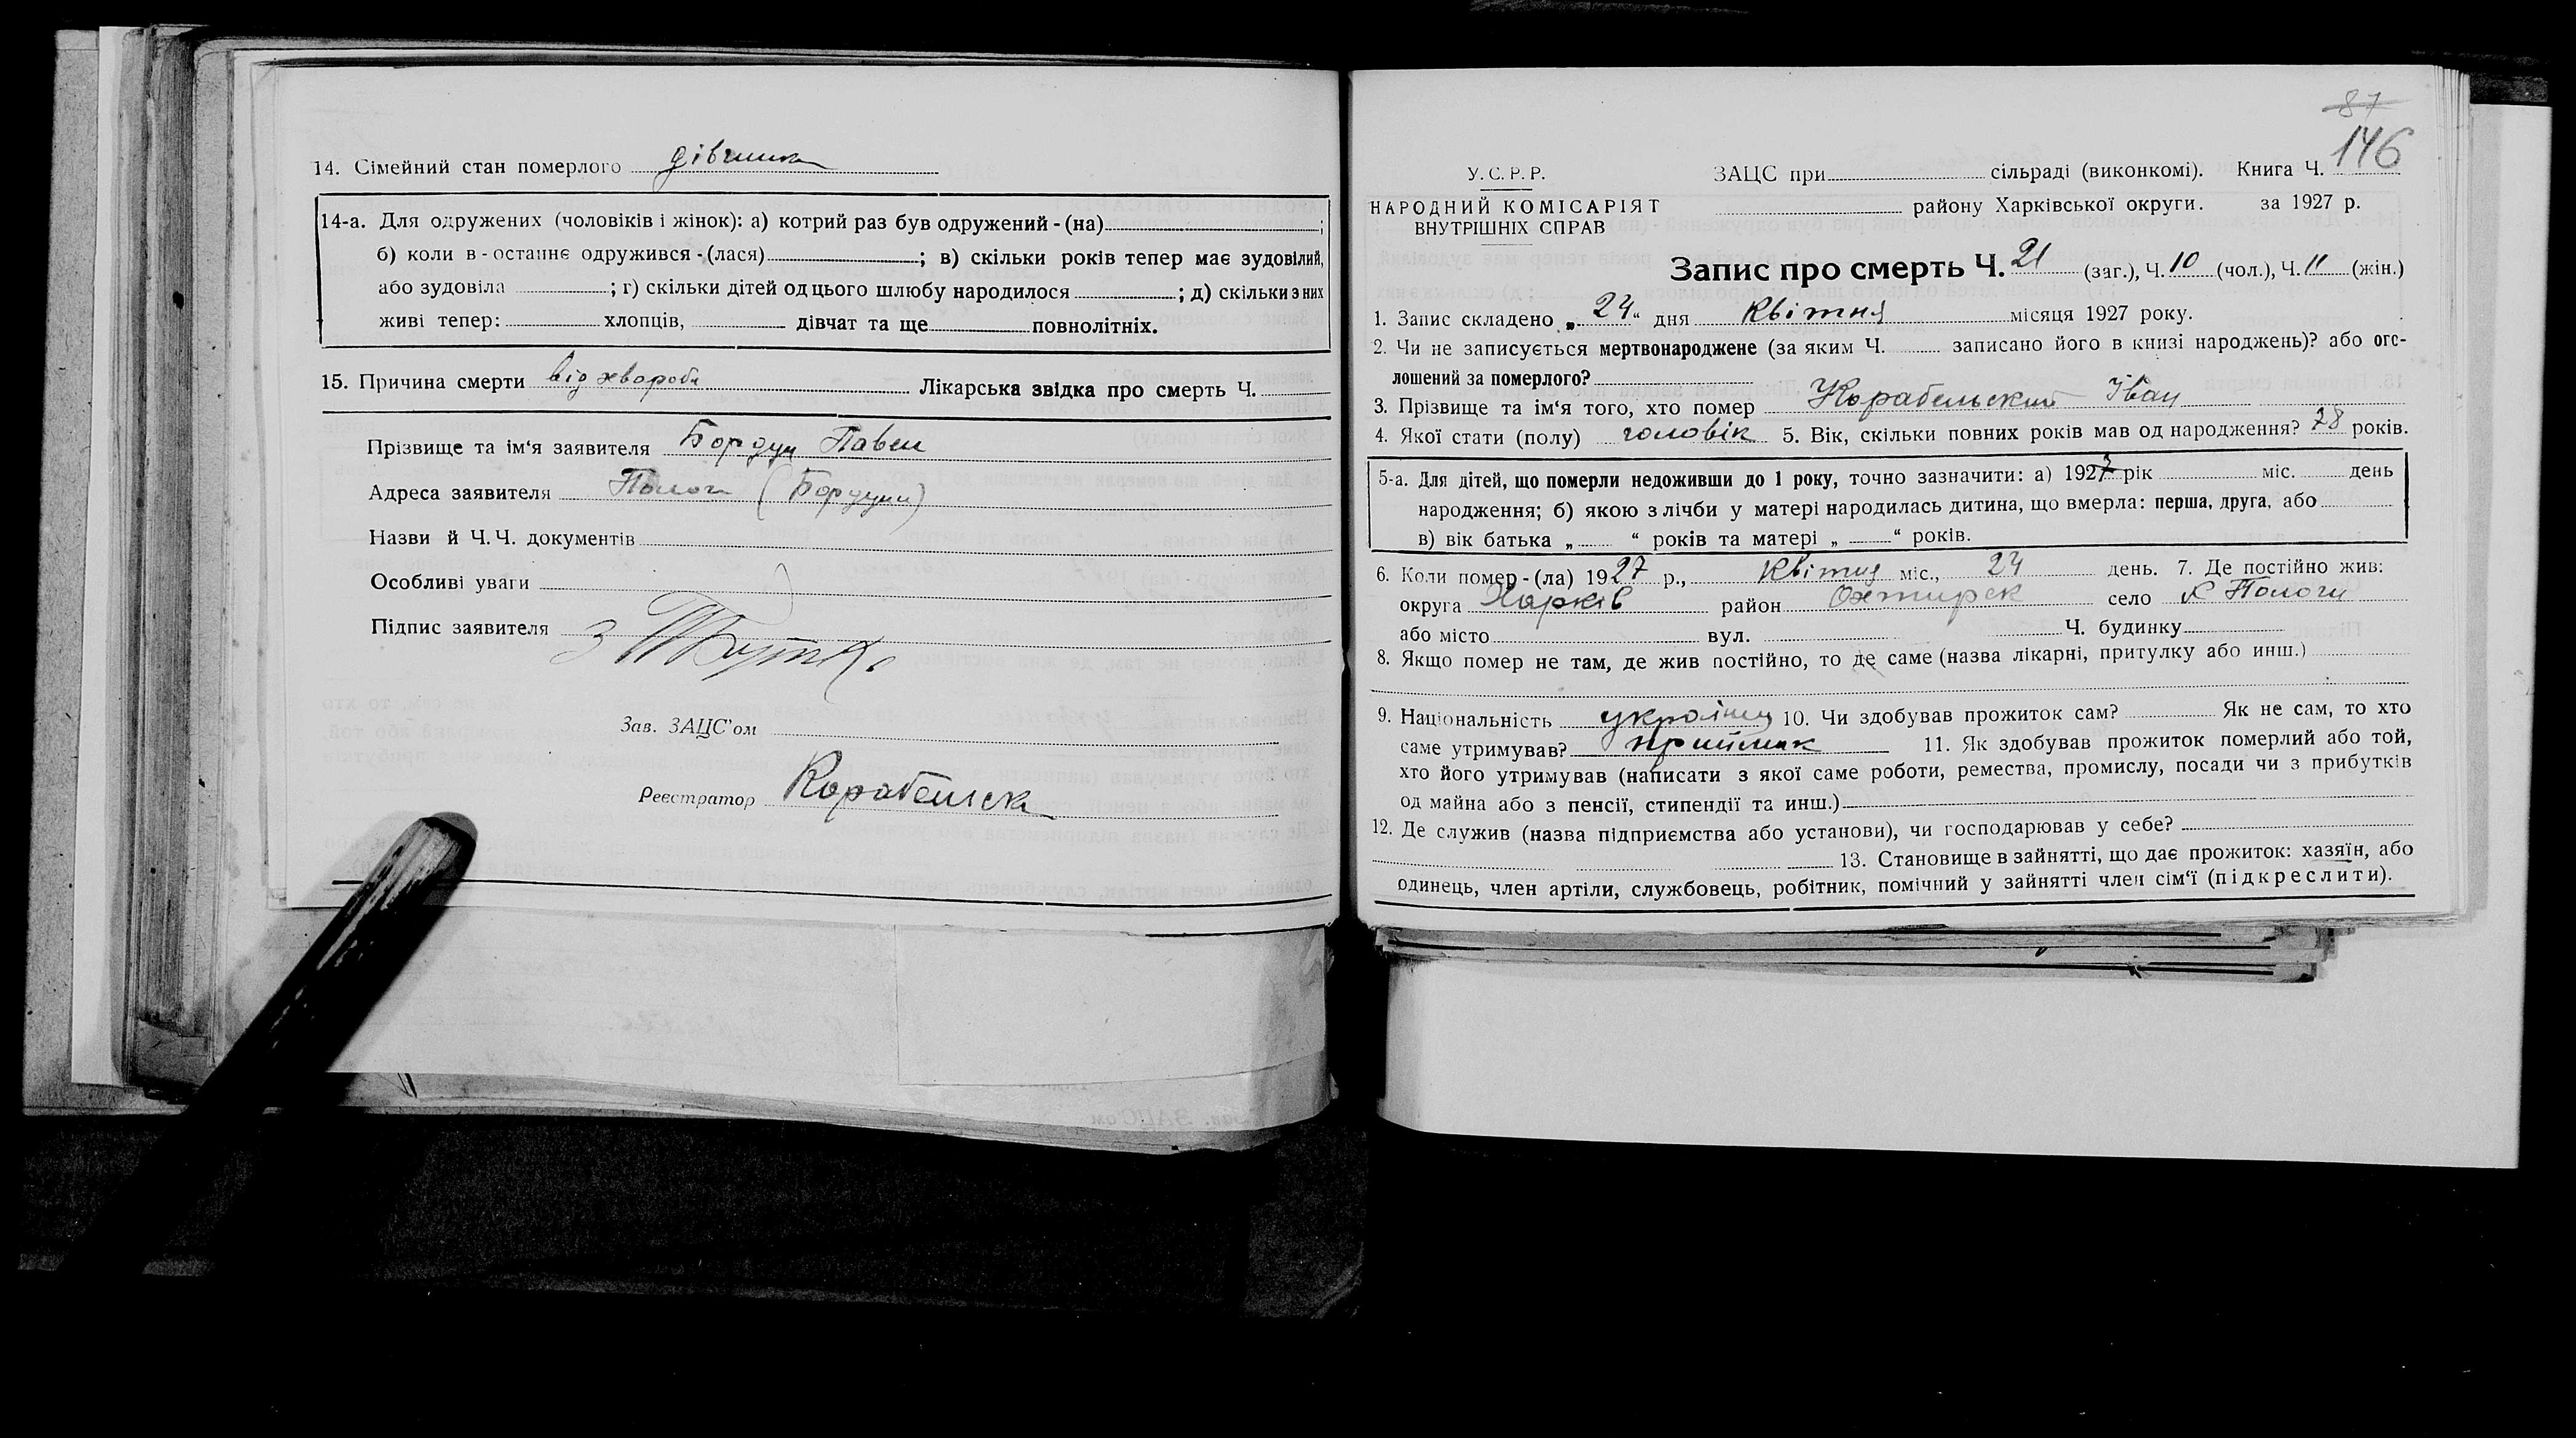 14. Сімейний стан померлого дівчинка
14-а. Для одружених (чоловіків і жінок): а) котрий раз був одружений-(на) ;
б) коли в-останнє одружився-(лася) ; в) скільки років тепер має зудовілий,
або зудовіла ; г) скільки дітей од цього шлюбу народилося ; д) скільки з них
живі тепер: хлопців, дівчат та ще повнолітніх.
15. Причина смерти від хвороби Лікарська звідка про смерть Ч.
Прізвище та ім'я заявителя Бордун Павел
Адреса заявителя Пологи (Бордуни)
Назви й Ч.Ч. документів
Особливі уваги
Підпис заявителя
Зав. ЗАЦС'ом
Реєстратор Корабельск
87
146
У.С.Р.Р.
НАРОДНИЙ КОМІСАРІЯТ
ВНУТРІШНІХ СПРАВ
ЗАЦС при сільраді (виконкомі). Книга Ч.
району Харківської округи. за 1927 р.
Запис про смерть Ч. 21 (заг.), Ч. 10 (чол.), Ч. 11 (жін.)
1. Запис складено „ 24 “ дня Квітня місяця 1927 року.
2. Чи не записується мертвонароджене (за яким Ч. записано його в книзі народжень)? або ого-
лошений за померлого?
3. Прізвище та ім'я того, хто помер Корабельский Іван
4. Якої стати (полу) чоловік 5. Вік, скільки повних років мав од народження? 28 років.
5-а. Для дітей, що померли недоживши до 1 року, точно зазначити: а) 1927 рік міс. день
народження; б) якою з лічби у матері народилась дитина, що вмерла: перша, друга, або
в) вік батька „ “ років та матері „ “ років.
6. Коли помер-(ла) 1927 р., Квітня міс., 24 день. 7. Де постійно жив:
округа Харків район Охтирск село х Пологи
або місто вул. Ч. будинку
8. Якщо помер не там, де жив постійно, то де саме (назва лікарні, притулку або инш.)
9. Національність українец 10. Чи здобував прожиток сам? Як не сам, то хто
саме утримував? приймак 11. Як здобував прожиток померлий або той,
хто його утримував (написати з якої саме роботи, ремества, промислу, посади чи з прибутків
од майна або з пенсії, стипендії та инш.)
12. Де служив (назва підприємства або установи), чи господарював у себе?
13. Становище в зайнятті, що дає прожиток: хазяїн, або
одинець, член артіли, службовець, робітник, помічний у зайнятті член сім'ї (підкреслити).